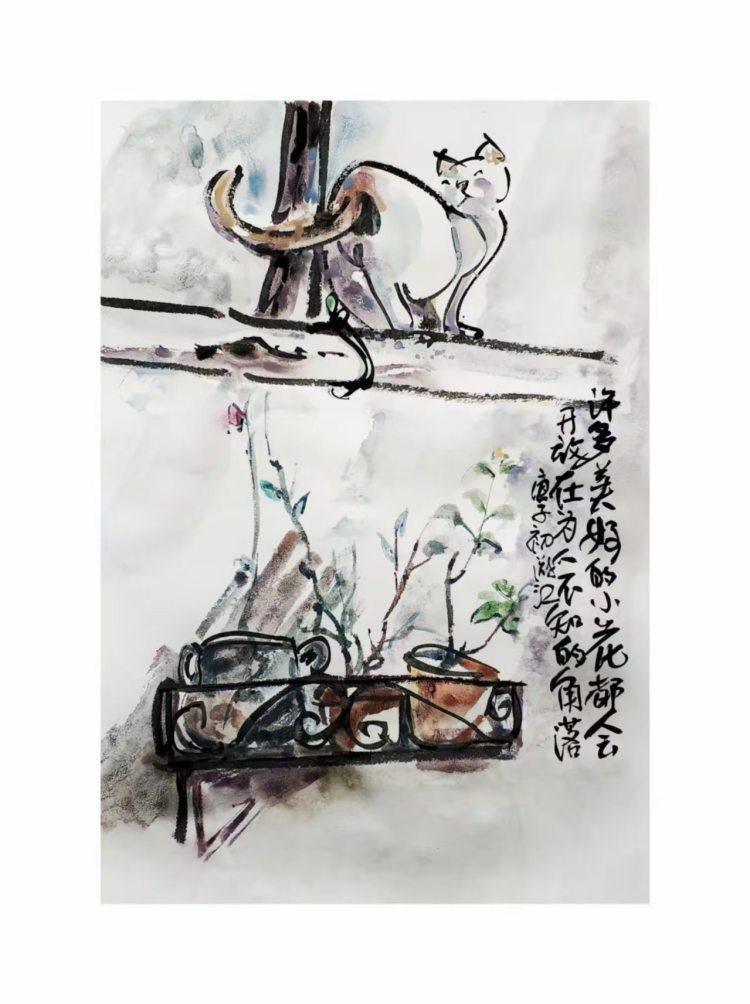 许多美好的小花都会
开放在为人不知的角落
庚子初